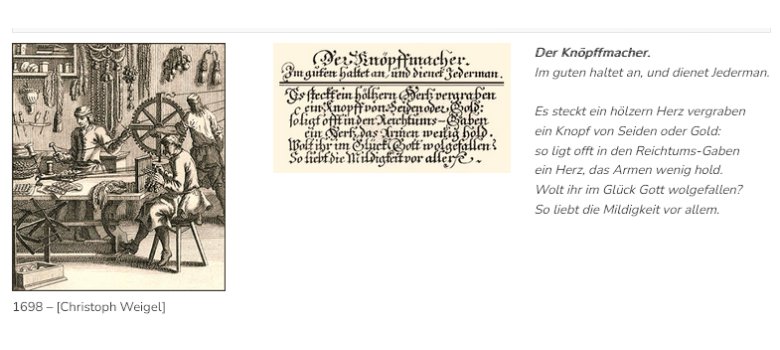 Der Knöpffmacher.
Im guten haltet an, und dienet Jederman.
Es steckt ein höltzern Hertz vergraben
ein Knopff von Seiden oder Gold:
so ligt offt in den Reichtums-Gaben
ein Hertz, das Armen wenig hold.
Wolt ihr im Glück Gott wolgefallen?
So liebt die Mildigkeit vor allen.
Der Knöpffmacher.
Im guten haltet an, und dienet Jederman.
Es steckt ein hölzern Herz vergraben
ein Knopf von Seiden oder Gold:
so ligt offt in den Reichtums-Gaben
ein Herz, das Armen wenig hold.
Wolt ihr im Glück Gott wolgefallen?
So liebt die Mildigkeit vor allem.
1698 – [Christoph Weigel]